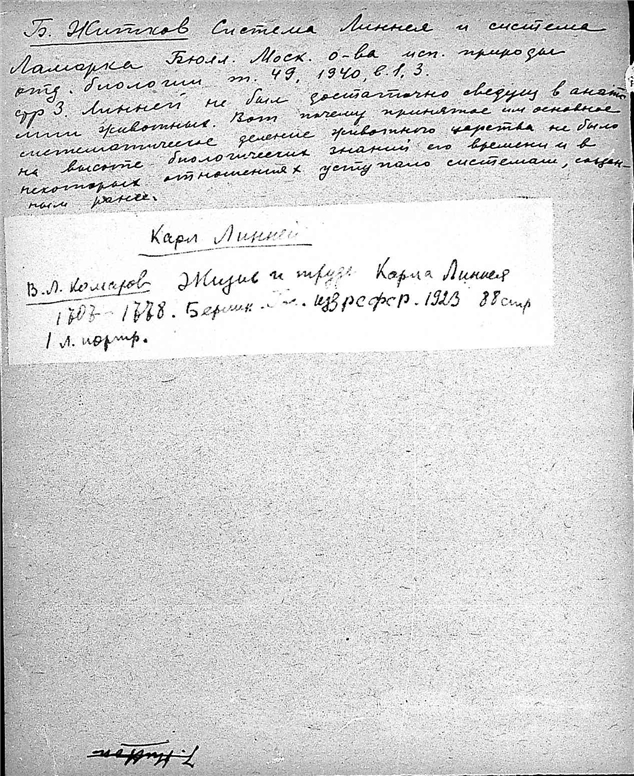 Б. Житков Система Линнея и система
Ламарка Бюлл. Моск. о-ва исп. природы
отд. биологии т. 49, 1940, в. 1, 3.
стр 3. Линней не был достаточно сведущ в анато-
мии животных. Вот почему принятое им основное
систематическое деление животного царства не было
на высоте биологических знаний его времени и в
некоторых отношениях уступало системам, создан-
ным ранее.
Карл Линней
В. Л. Комаров Жизнь и труды Карла Линнея
1707 – 1778. Берлин. изд РСФСР. 1923 88 стр
1 л. портр.